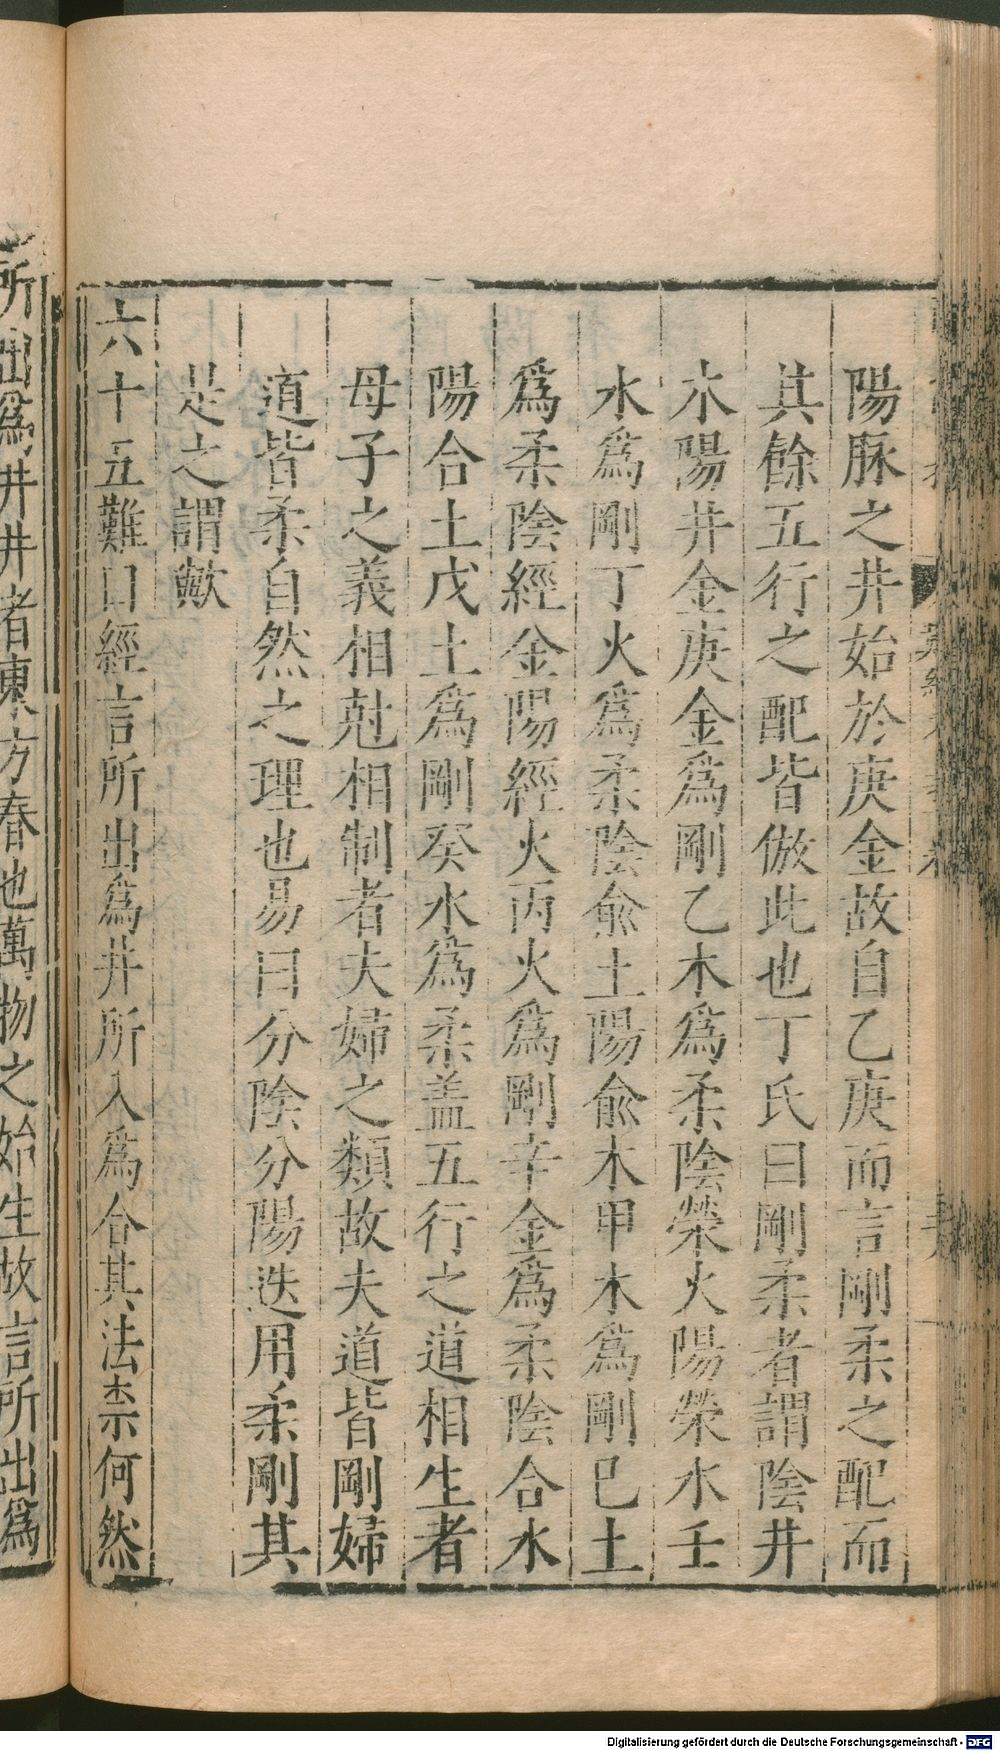 陽脉之井始於庚金故自乙庚而言剛柔之配而
其餘五行之配皆倣此也丁氏曰剛柔者謂陰井
木陽井金庚金為剛乙木為柔陰榮火陽榮水壬
水為剛丁火為柔陰俞土陽俞木甲木為剛巳土
為柔陰經金陽經火丙火為剛辛金為柔陰合水
陽合土戊土為剛癸水為柔盖五行之道相生者
母子之義相尅相制者夫婦之類故夫道皆剛婦
道皆柔自然之理也易曰分陰分陽迭用柔剛其
是之謂歟
六十五難曰經言所出為井所入為合其法柰何然
所出為井井者東方春也萬物之始生故言所出為
Digitalisierung gefördert durch die Deutsche Forschungsgemeinschaft - DFG